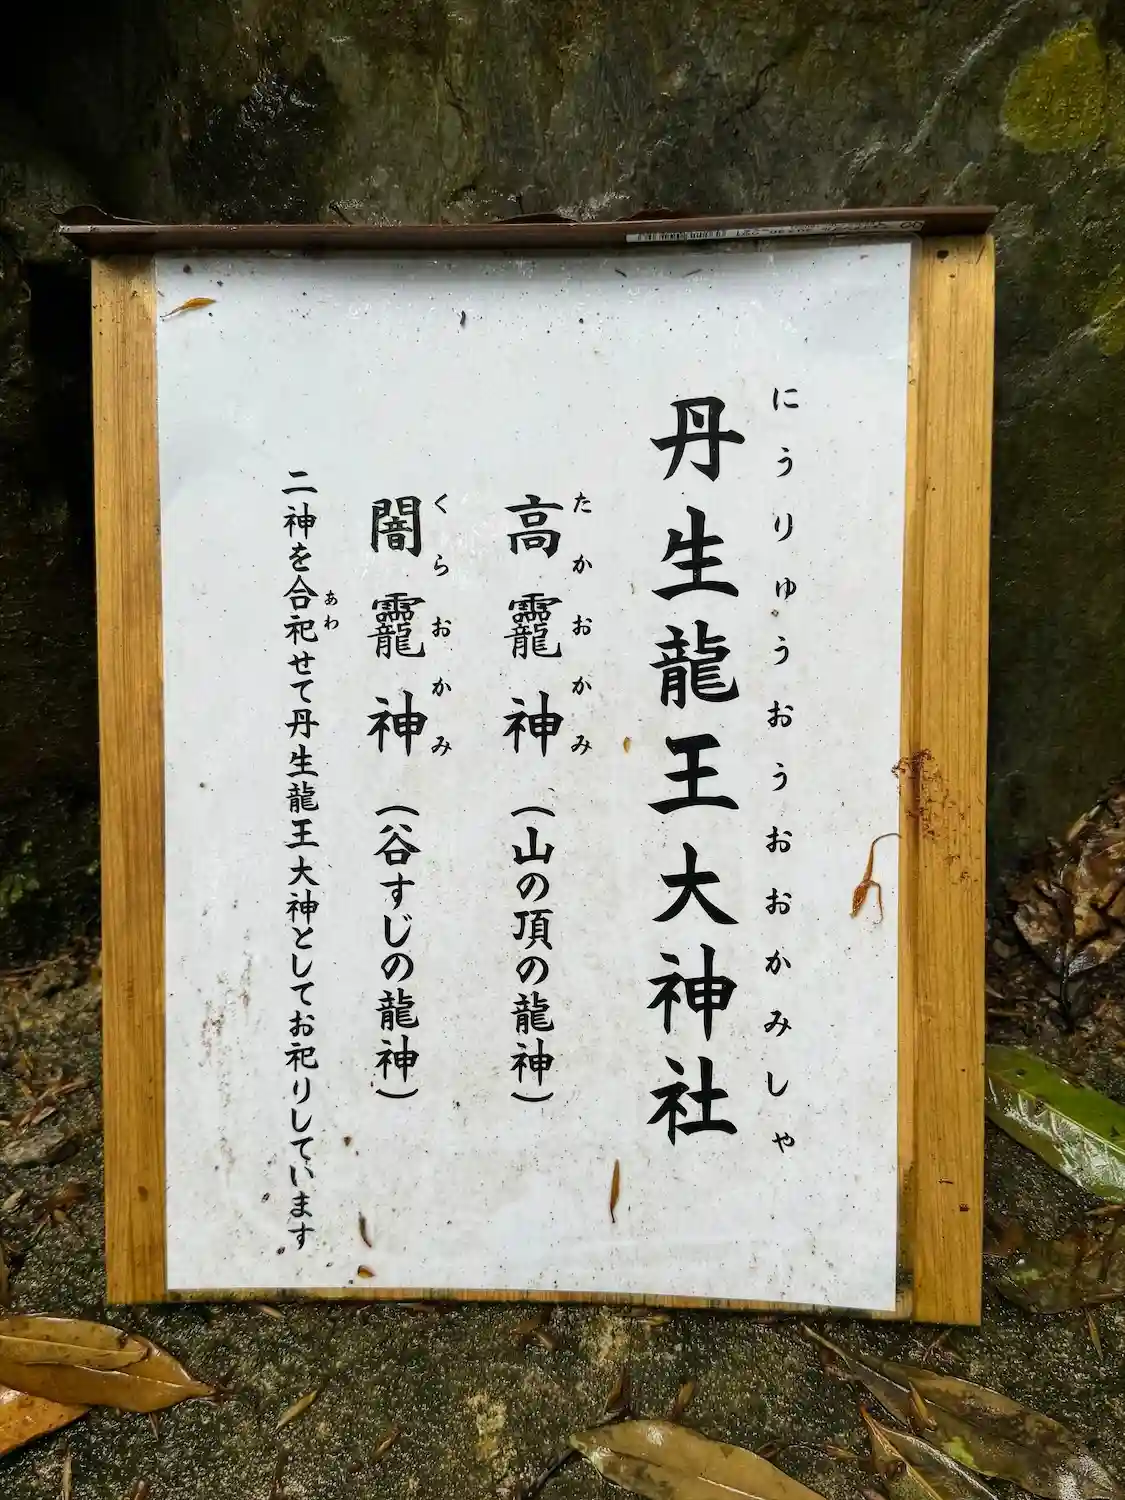 にうりゅうおうおおかみしゃ
丹生龍王大神社
たかおかみ
高龗神（山の頂の龍神）
くらおかみ
闇龗神（谷すじの龍神）
あわ
二神を合祀せて丹生龍王大神としてお祀りしています